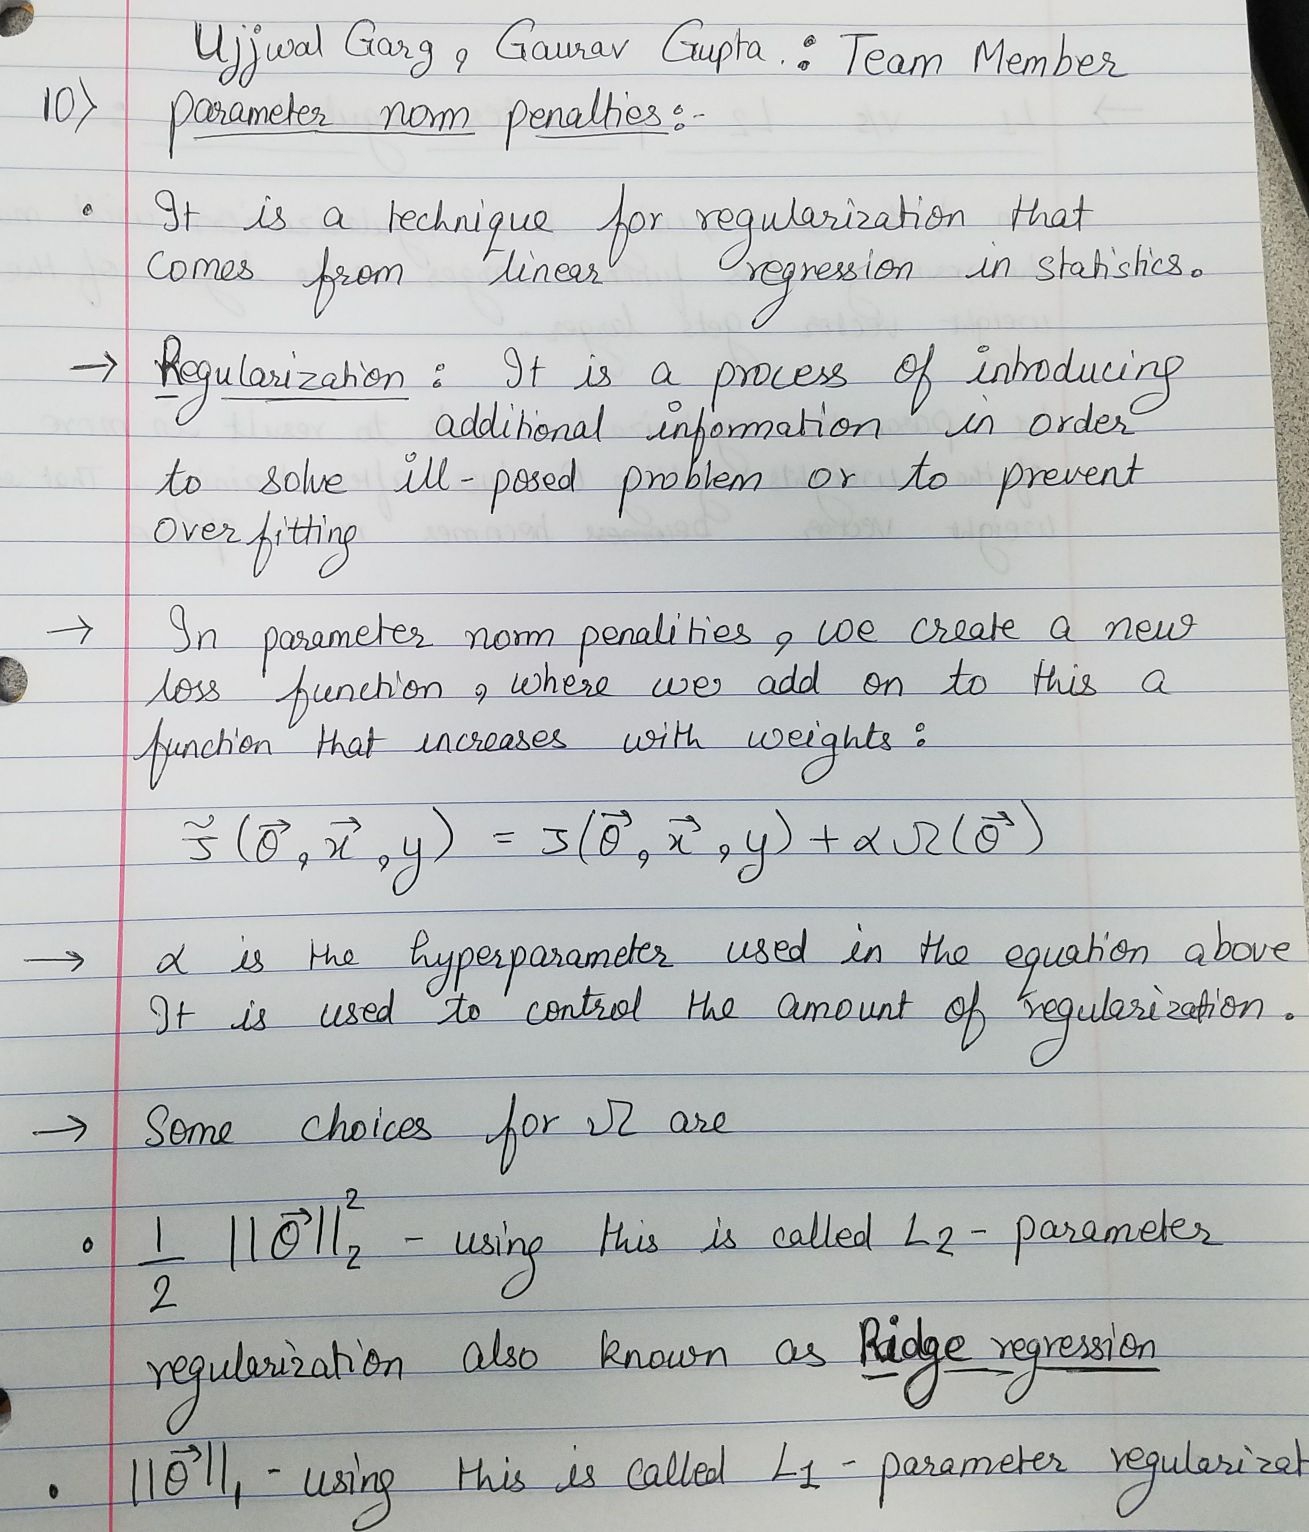 Ujjwal Garg, Gaurav Gupta.: Team Member
10) parameter norm penalties:-
• It is a technique for regularization that
comes from linear regression in statistics.
→ Regularization: It is a process of introducing
additional information in order
to solve ill-posed problem or to prevent
overfitting
→ In parameter norm penalities, we create a new
loss function, where we add on to this a
function that increases with weights:
J̃(θ⃗, x⃗, y) = J(θ⃗, x⃗, y) + α Ω(θ⃗)
→ α is the hyperparameter used in the equation above
It is used to control the amount of regularization.
→ Some choices for Ω are
• 1/2 ||θ⃗||₂² - using this is called L2 - parameter
regularization also known as Ridge regression
• ||θ⃗||₁ - using this is called L1 - parameter regularizat